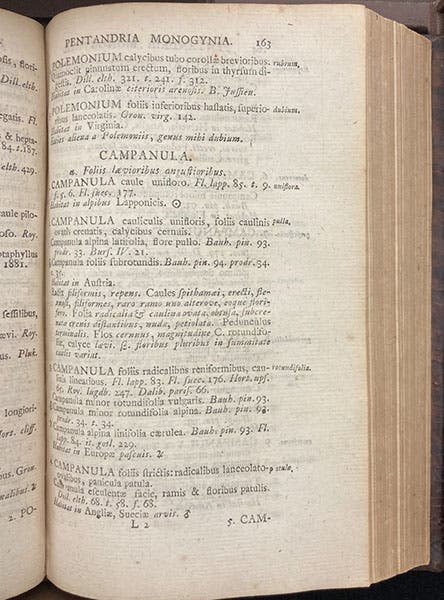 PENTANDRIA MONOGYNIA. 163
POLEMONIUM calycibus tubo corollæ brevioribus. rubrum.
Quamoclit pinnatum erectum, floribus in thyrsum di-
gestis. Dill. elth. 321. t. 241. f. 312.
Habitat in Carolinæ citerioris arenosis. B. Jussieu.
POLEMONIUM foliis inferioribus hastatis, superio- dubium.
ribus lanceolatis. Gron. virg. 142.
Habitat in Virginia.
facies aliena a Polemoniis, genus mihi dubium.
CAMPANULA.
Foliis lævioribus angustioribus.
CAMPANULA caule unifloro. Fl. lapp. 85. t. 9. uniflora.
f. 5. 6. Fl. suec. 177.
Habitat in alpibus Lapponicis. ☉
CAMPANULA cauliculis unifloris, foliis caulinis pulla.
ovatis crenatis, calycibus cernuis.
Campanula alpina latifolia, flore pullo. Bauh. pin. 93.
prodr. 33. Burs. IV. 21.
Campanula foliis subrotundis. Bauh. pin. 94. prodr. 34.
t. 35.
Habitat in Austria.
Radix filiformis, repens. Caules spithamai, erecti, fle-
xuosi, filiformes, raro ramo uno alterove, eoque flori-
fero. Folia radicalia & caulina ovata, obtusa, subcre-
nata crenis distantibus, nuda, petiolata. Pedunculus
terminalis. Flos cernuus, magnitudine C. rotundifo-
liæ, calyce lævi. floribus pluribus in summitate
caulis variat.
CAMPANULA foliis radicalibus reniformibus, cau- rotundifolia.
linis linearibus. Fl. lapp. 83. Fl. suec. 176. Hort. ups.
65. Roy. lugdb. 247. Dalib. paris. 66.
Campanula minor rotundifolia vulgaris. Bauh. pin. 93.
Campanula minor rotundifolia alpina. Bauh. pin. 93.
prodr. 34. t. 34.
Campanula alpina linifolia cærulea. Bauh. pin. 93. Fl.
lapp. 84. it. gotl. 229.
Habitat in Europæ pascuis. ♃
CAMPANULA foliis strictis: radicalibus lanceolato- patula,
ovalibus, panicula patula.
Campanula esculentæ facie, ramis & floribus patulis.
Dill. elth. 68. t. 58. f. 68.
Habitat in Angliæ, Sueciæ arvis. ♂
L 2 5. CAM-